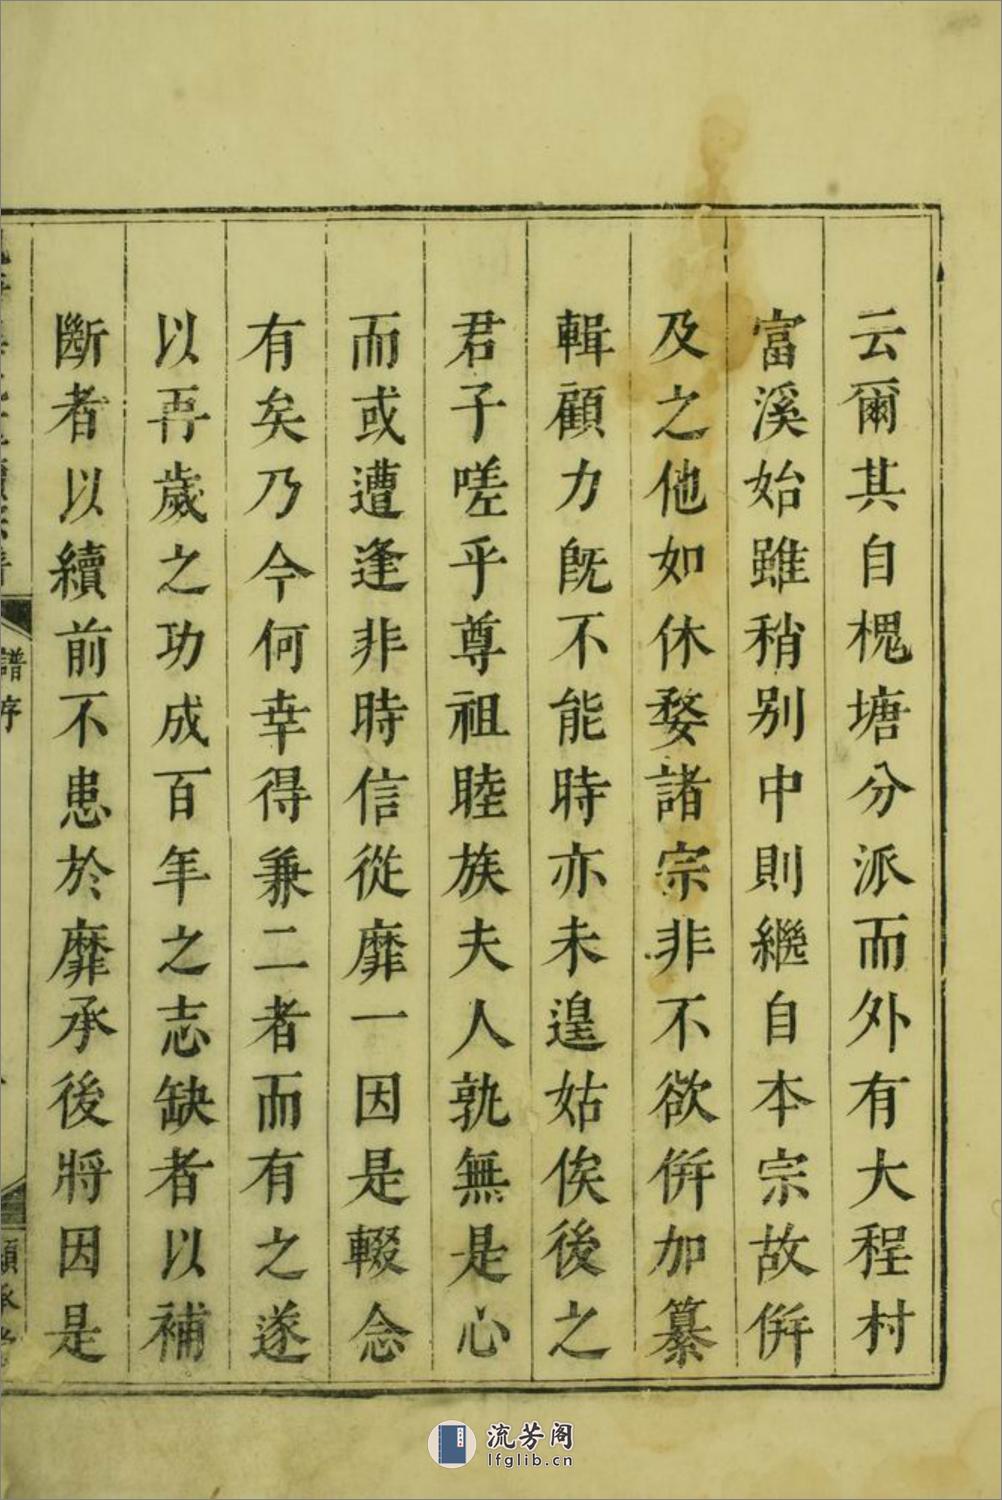 云爾其自槐塘分派而外有大程村
富溪始雖稍别中則繼自本宗故併
及之他如休婺諸宗非不欲併加纂
輯顧力旣不能時亦未遑姑俟後之
君子嗟乎尊祖睦族夫人孰無是心
而或遭逢非時信從靡一因是輟念
有矣乃今何幸得兼二者而有之遂
以再歲之功成百年之志缺者以補
斷者以續前不患於靡承後將因是
譜序
流芳阁
lfglib.cn